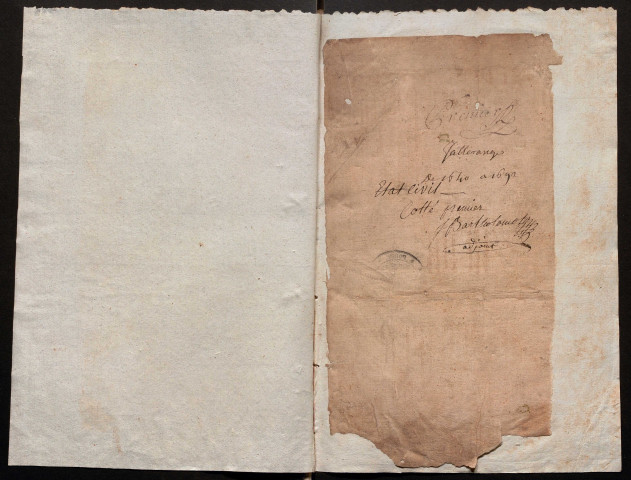 Premier
Valleraugue
de 1640 a 1692
Etat civil
Cotté premier
Bartholome
adjoint